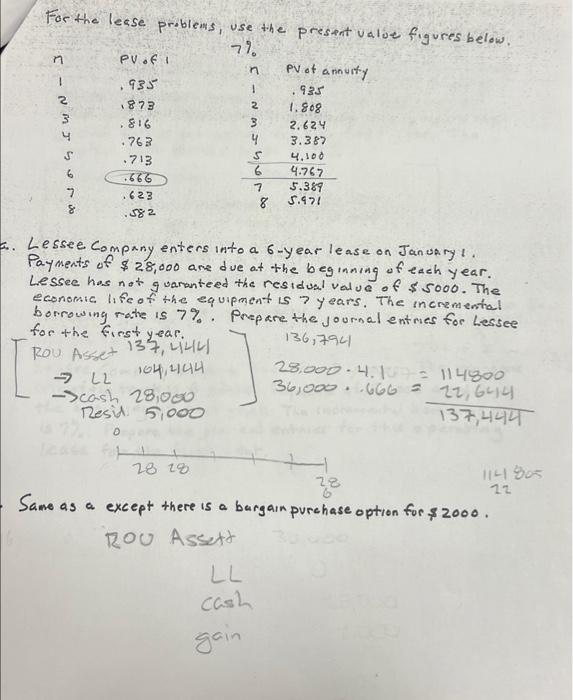 For the lease problems, use the present value figures below.
7%
n PV of 1 n PV of annuity
1 .935 1 .935
2 .873 2 1.808
3 .816 3 2.624
4 .763 4 3.387
5 .713 5 4.100
6 .666 6 4.767
7 .623 7 5.389
8 .582 8 5.971
a. Lessee Company enters into a 6-year lease on January 1.
Payments of $28,000 are due at the beginning of each year.
Lessee has not guaranteed the residual value of $5000. The
economic life of the equipment is 7 years. The incremental
borrowing rate is 7%. Prepare the journal entries for Lessee
for the first year.
136,794
ROU Asset 137,444
→ LL 104,444
→ cash 28,000
Resid 5,000
28,000 · 4.1 = 114800
36,000 · .666 = 22,644
137,444
0
28 28
28
6
114805
22
Same as a except there is a bargain purchase option for $2000.
ROU Assett
LL
cash
gain